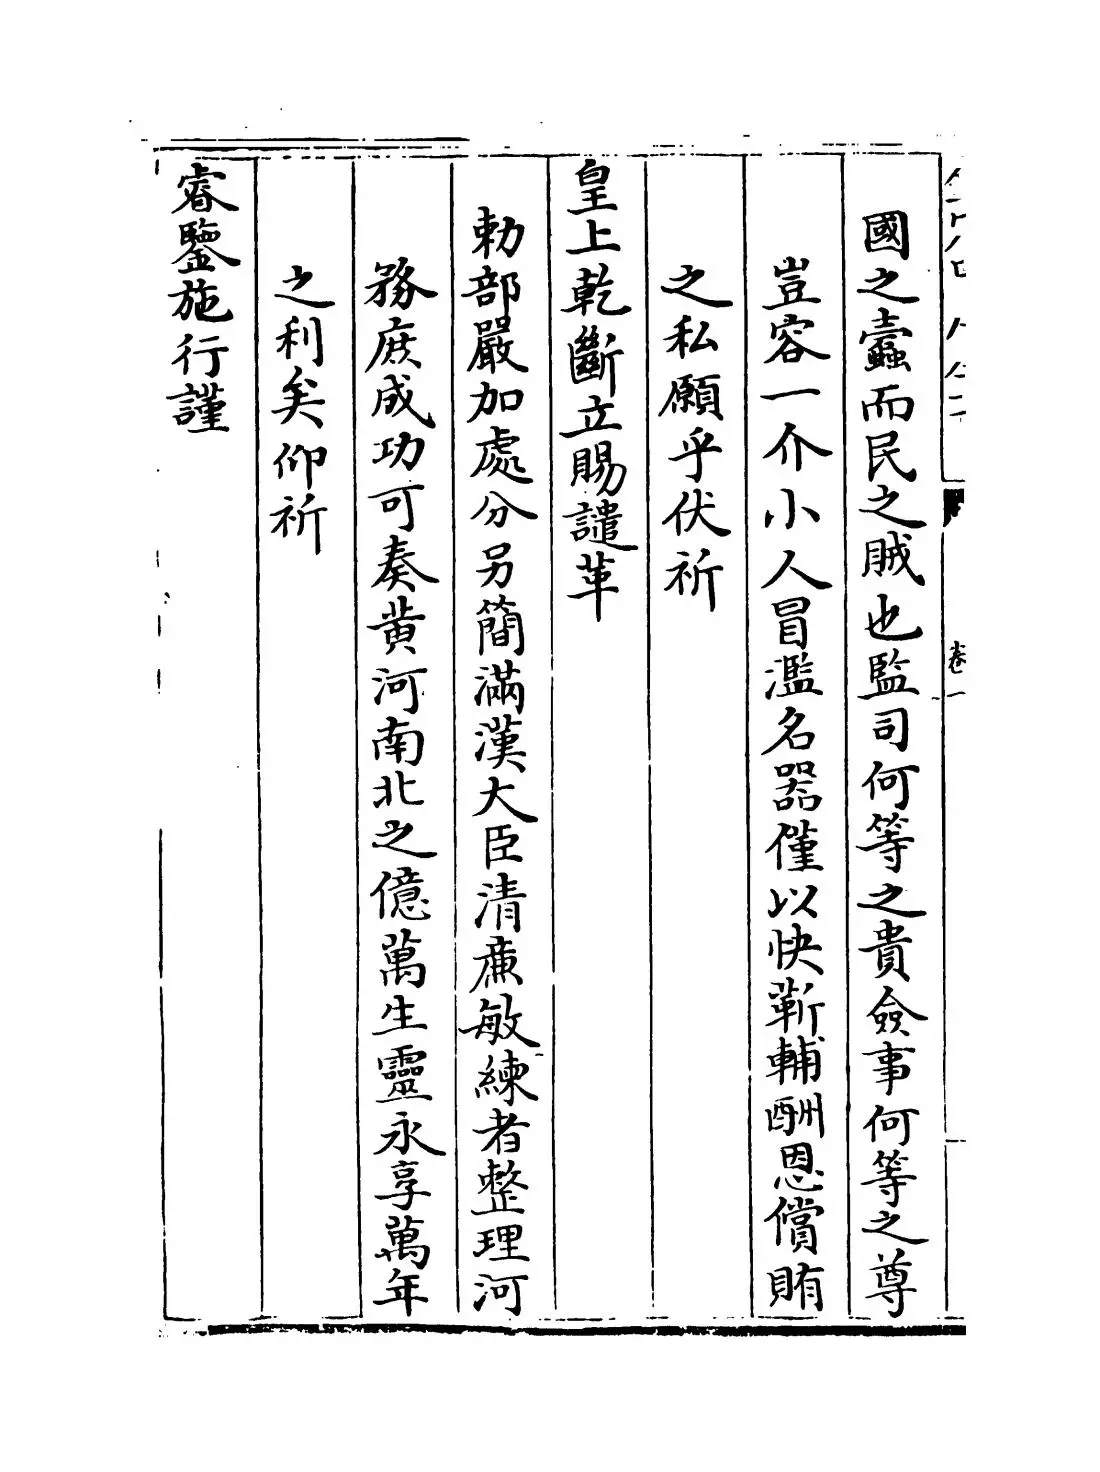 國之蠧而民之賊也監司何等之貴僉事何等之尊
豈容一介小人冒濫名器僅以快靳輔酬恩償賄
之私願乎伏祈
皇上乾斷立賜譴革
勅部嚴加處分另簡滿漢大臣清亷敏練者整理河
務庶成功可奏黄河南北之億萬生靈永享萬年
之利矣仰祈
睿鑒施行謹
卷一